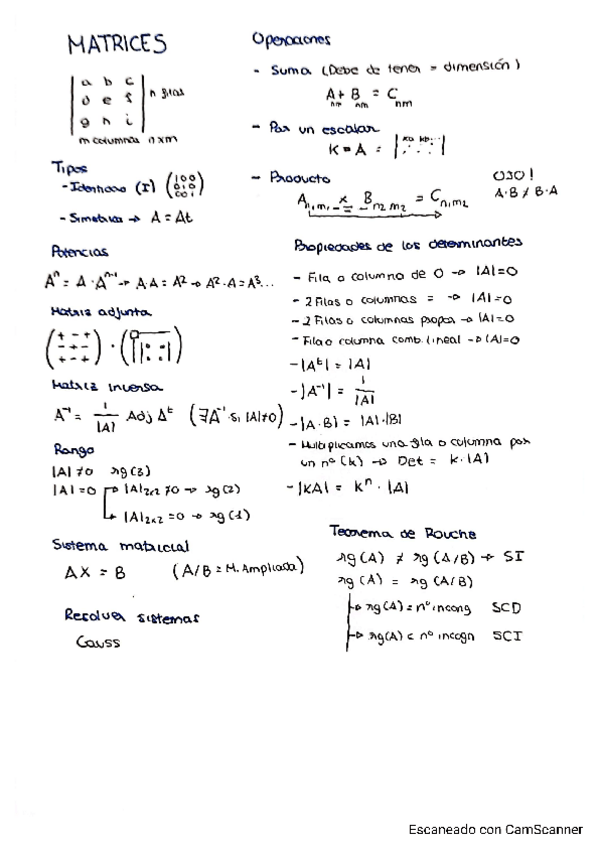 MATRICES
a b c
d e f
g h i
n filas
m columnas n x m
Tipos
- Identidad (I) (1 0 0
0 1 0
0 0 1)
- Simetrica → A = At
Potencias
Aⁿ = A · Aⁿ⁻¹ → A·A = A² → A²·A = A³...
Matriz adjunta
(+ - +
- + -
+ - +) ·
Matriz inversa
A⁻¹ = 1/|A| Adj Aᵗ (∃A⁻¹ si |A|≠0)
Rango
|A| ≠ 0 rg(3)
|A| = 0 → |A|₂ₓ₂ ≠ 0 → rg(2)
→ |A|₂ₓ₂ = 0 → rg(1)
Sistema matricial
AX = B (A/B = M. Ampliada)
Resolver sistemas
Gauss
Operaciones
- Suma (Debe de tener = dimensión)
A + B = C
nm nm nm
- Por un escalar
K = A = | ka kb ...
- Producto OJO!
A n₁m₁ x B n₂m₂ = C n₁m₂ A·B ≠ B·A
Propiedades de los determinantes
- Fila o columna de 0 → |A|=0
- 2 Filas o columnas = → |A|=0
- 2 Filas o columnas propor → |A|=0
- Fila o columna comb. lineal → |A|=0
- |Aᵗ| = |A|
- |A⁻¹| = 1/|A|
- |A·B| = |A|·|B|
- Multiplicamos una fila o columna por
un nº (k) → Det = k·|A|
- |kA| = kⁿ · |A|
Teorema de Rouche
rg(A) ≠ rg(A/B) → SI
rg(A) = rg(A/B)
→ rg(A) = nº incong SCD
→ rg(A) < nº incogn SCI
Escaneado con CamScanner